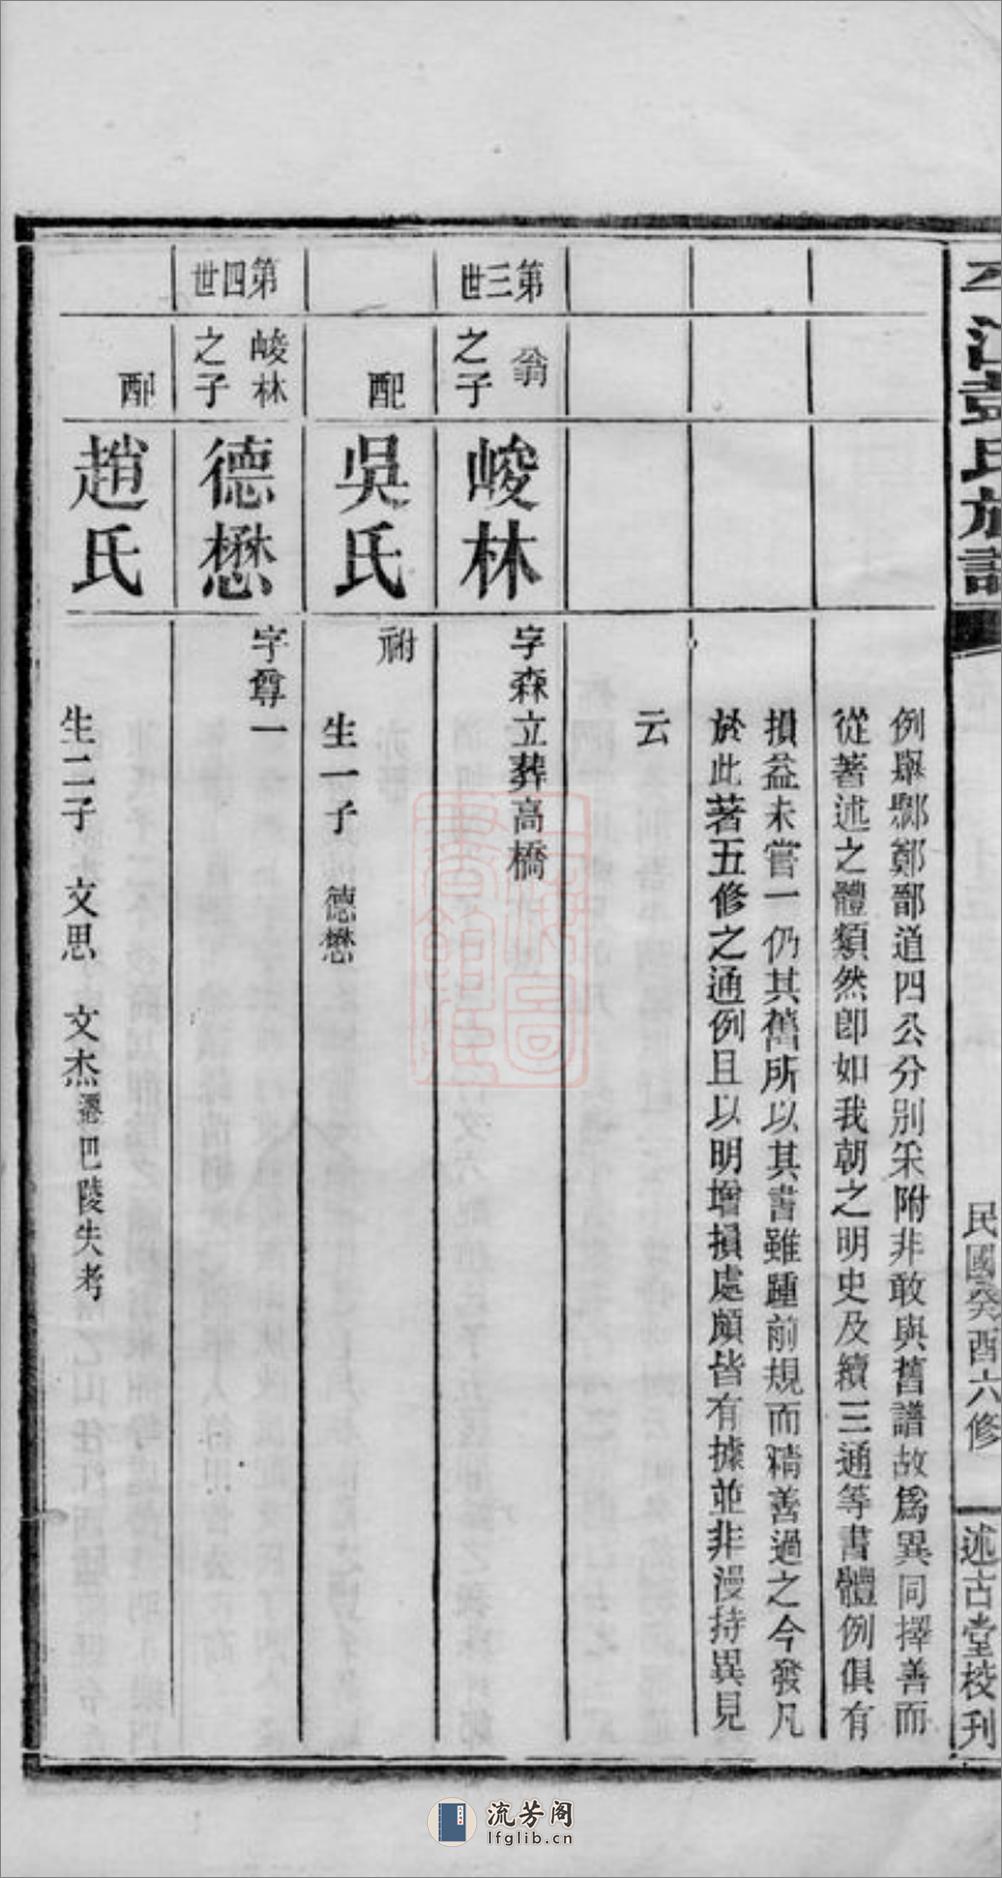 平江彭氏族譜
民國癸酉六修
述古堂校刊
例舉鄢鄭鄱道四公分別朱附非敢與舊譜故為異同擇善而
從著述之體類然卽如我朝之明史及續三通等書體例俱有
損益未嘗一仍其舊所以其書雖踵前規而精善過之今發凡
於此著五修之通例且以明增損處頗皆有據並非漫持異見
云
第三世
翁之子
峻林
字森立葬高橋
配
吳氏
祔
生一子 德懋
第四世
峻林之子
德懋
字尊一
配
趙氏
生二子 文思 文杰遷巴陵失考
上海圖書館藏
流芳阁
lfglib.cn